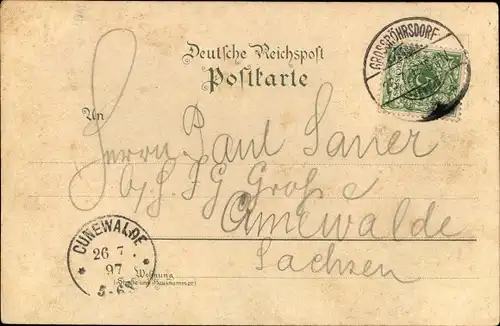 Deutsche Reichspost
Postkarte
GROSSRÖHRSDORF
An
Herrn Paul
b/ J. G. Große
Cunewalde
Sachsen
CUNEWALDE
26 7
97
5-6
Wohnung
(Straße und Hausnummer)